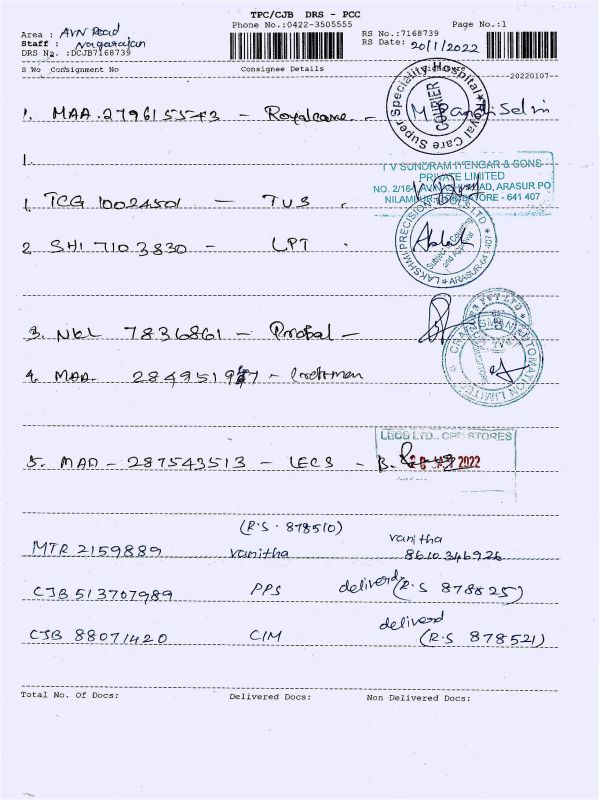 TPC/CJB DRS - PCC
Phone No.:0422-3505555
Page No.:1
Area : AVN Road
Staff : Nagarajan
DRS No. :DCJB7168739
RS No.:7168739
RS Date: 20/1/2022
S No Consignment No Consignee Details
20220107-
1. MAA.279615543 - Royalcare -
Royal Care Super Speciality Hospital
COURIER
1.
T V SUNDRAM IYENGAR & SONS
PRIVATE LIMITED
NO. 2/16 ROAD, ARASUR PO
641 407
1 TCG 10024501 - TVS
2 SHI 7103830 - LPT
LAKSHMI PRECISION LTD
ARASUR-641 407
3. NKL 7836861 - Probal -
4. MAA. 284951917
AUTOMATION LIMITED
LECS LTD., CPD STORES
5. MAA - 287543513 - LECS - B.
2022
(R.S. 878510)
MTR 2159889 vanitha vanitha
8610346926
CJB 513707989 PPS deliverd (R.S 878825)
CJB 88071420 CIM deliverd
(R.S 878521)
Total No. Of Docs: Delivered Docs: Non Delivered Docs: